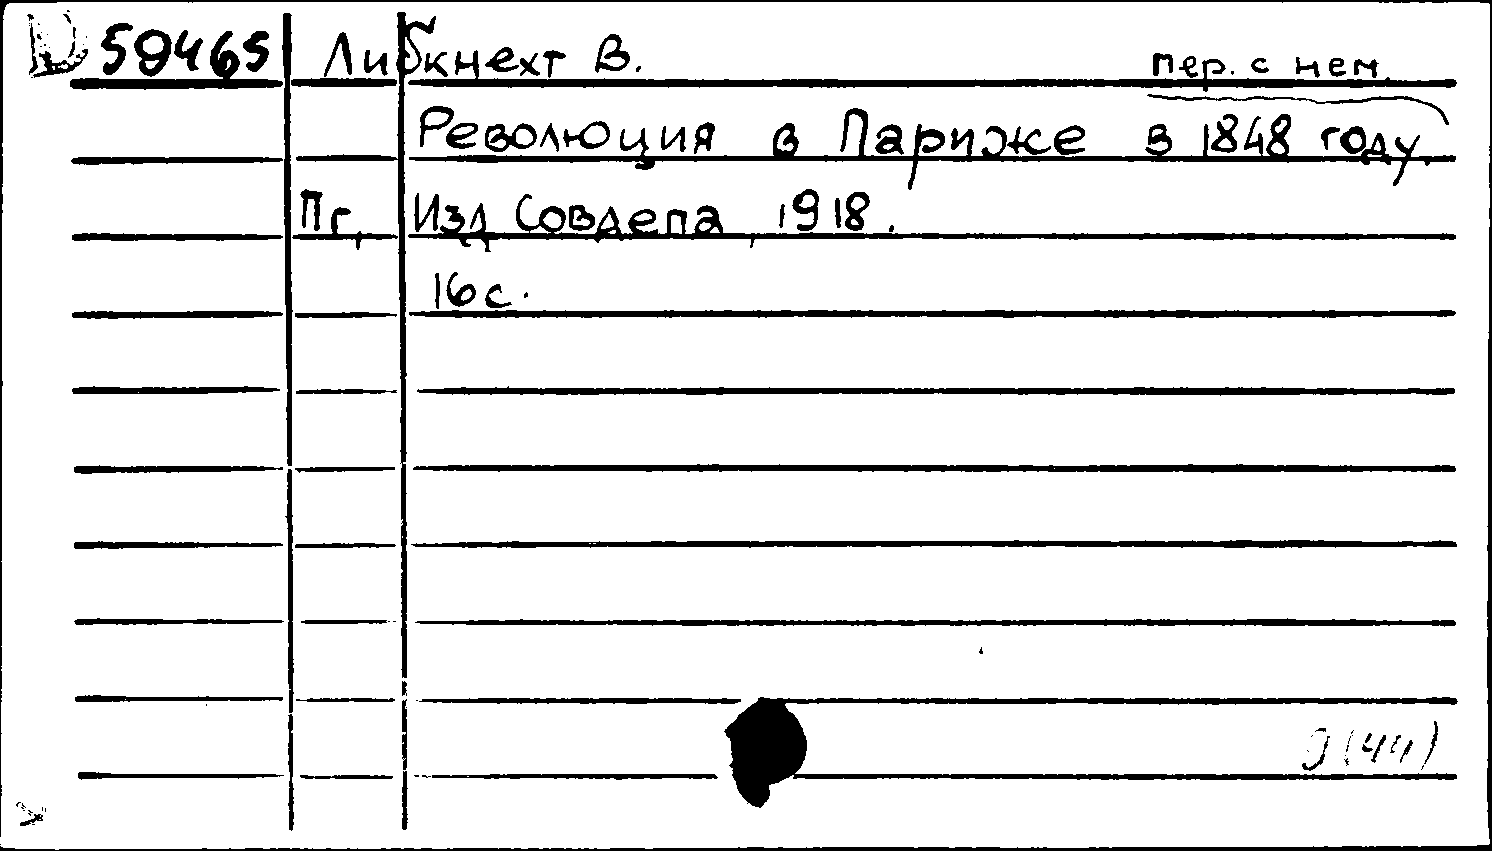 D 59465 Либкнехт В. пер. с нем.
Революция в Париже в 1848 году.
Пг, Изд Совдепа, 1918.
16 с.
9(44)